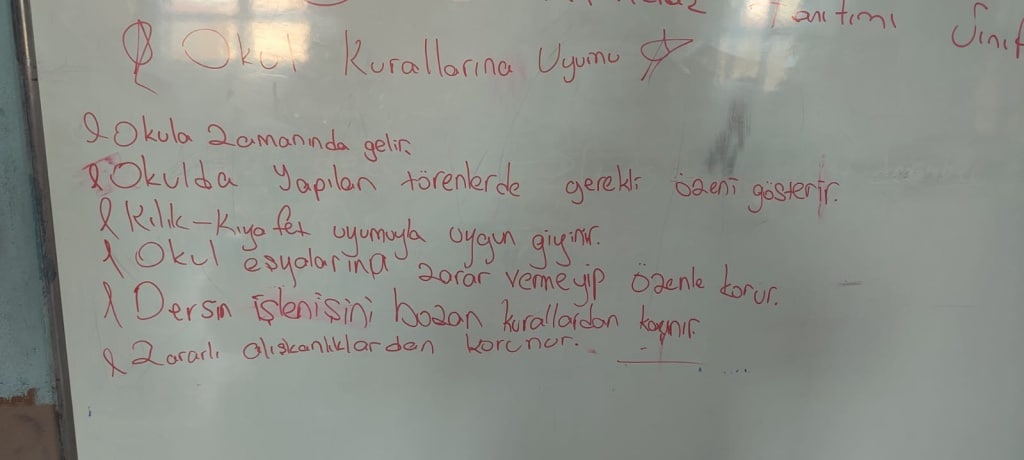 Tanıtımı Sınıf
Okul Kurallarına Uyumu
Okula Zamanında gelir.
Okulda Yapılan törenlerde gerekli özeni gösterir.
Kılık-Kıyafet uyumuyla uygun giyinir.
Okul eşyalarına zarar vermeyip özenle korur.
Dersin işlenişini bozan kurallardan kaçınır
Zararlı alışkanlıklardan korunur.